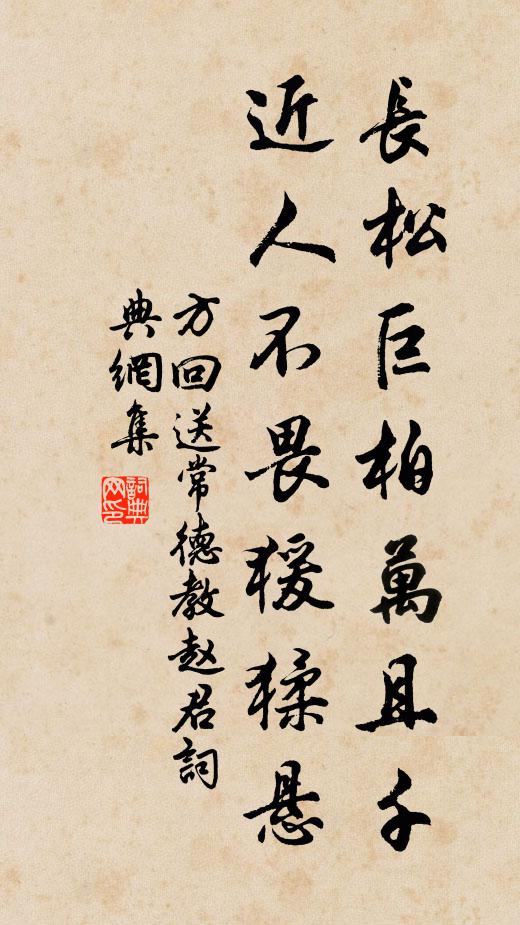 長松巨柏萬且千
近人不畏猨猱悬
方回送常德教赵君詞
典網集
詞典网印